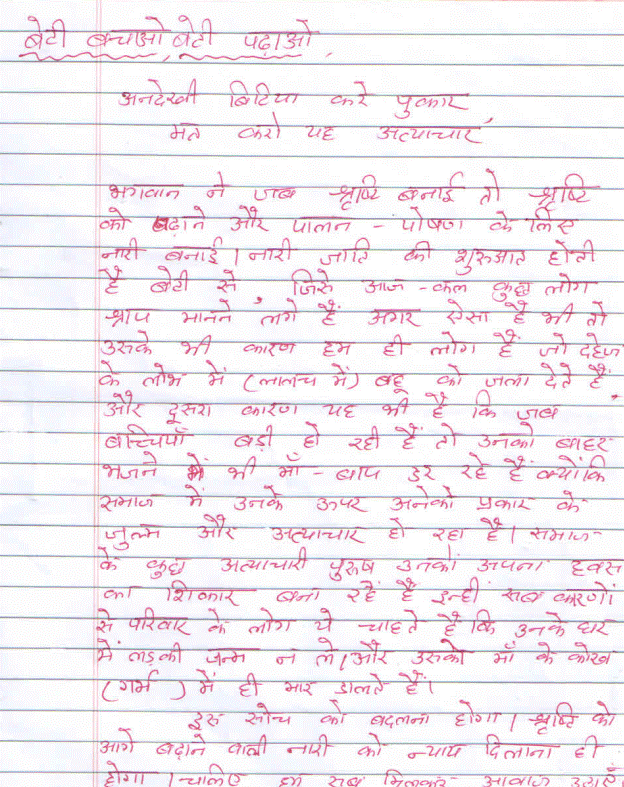 बेटी बचाओ बेटी पढ़ाओ,
अनदेखी बिटिया करे पुकार,
मत करो यह अत्याचार,
भगवान ने जब श्रृष्टि बनाई तो श्रृष्टि
को बढ़ाने और पालन - पोषण के लिए
नारी बनाई। नारी जाति की शुरुआत होती
है बेटी से जिसे आज - कल कुछ लोग
श्राप मानने लगे हैं अगर ऐसा है भी तो
उसके भी कारण हम ही लोग हैं जो दहेज
के लोभ में (लालच में) बहू को जला देते हैं
और दूसरा कारण यह भी है कि जब
बच्चियाँ बड़ी हो रही हैं तो उनको बाहर
भेजने में भी माँ - बाप डर रहे हैं क्योंकि
समाज में उनके ऊपर अनेको प्रकार के
जुल्म और अत्याचार हो रहा है। समाज
के कुछ अत्याचारी पुरुष उनको अपना हवस
का शिकार बना रहें हैं इन्ही सब कारणों
से परिवार के लोग ये चाहते हैं कि उनके घर
में लड़की जन्म न ले। और उसको माँ के कोख
(गर्भ) में ही मार डालते हैं।
इस सोच को बदलना होगा। श्रृष्टि को
आगे बढ़ाने वाली नारी को न्याय दिलाना ही
होगा। चलिए हम सब मिलकर आवाज उठाएँ